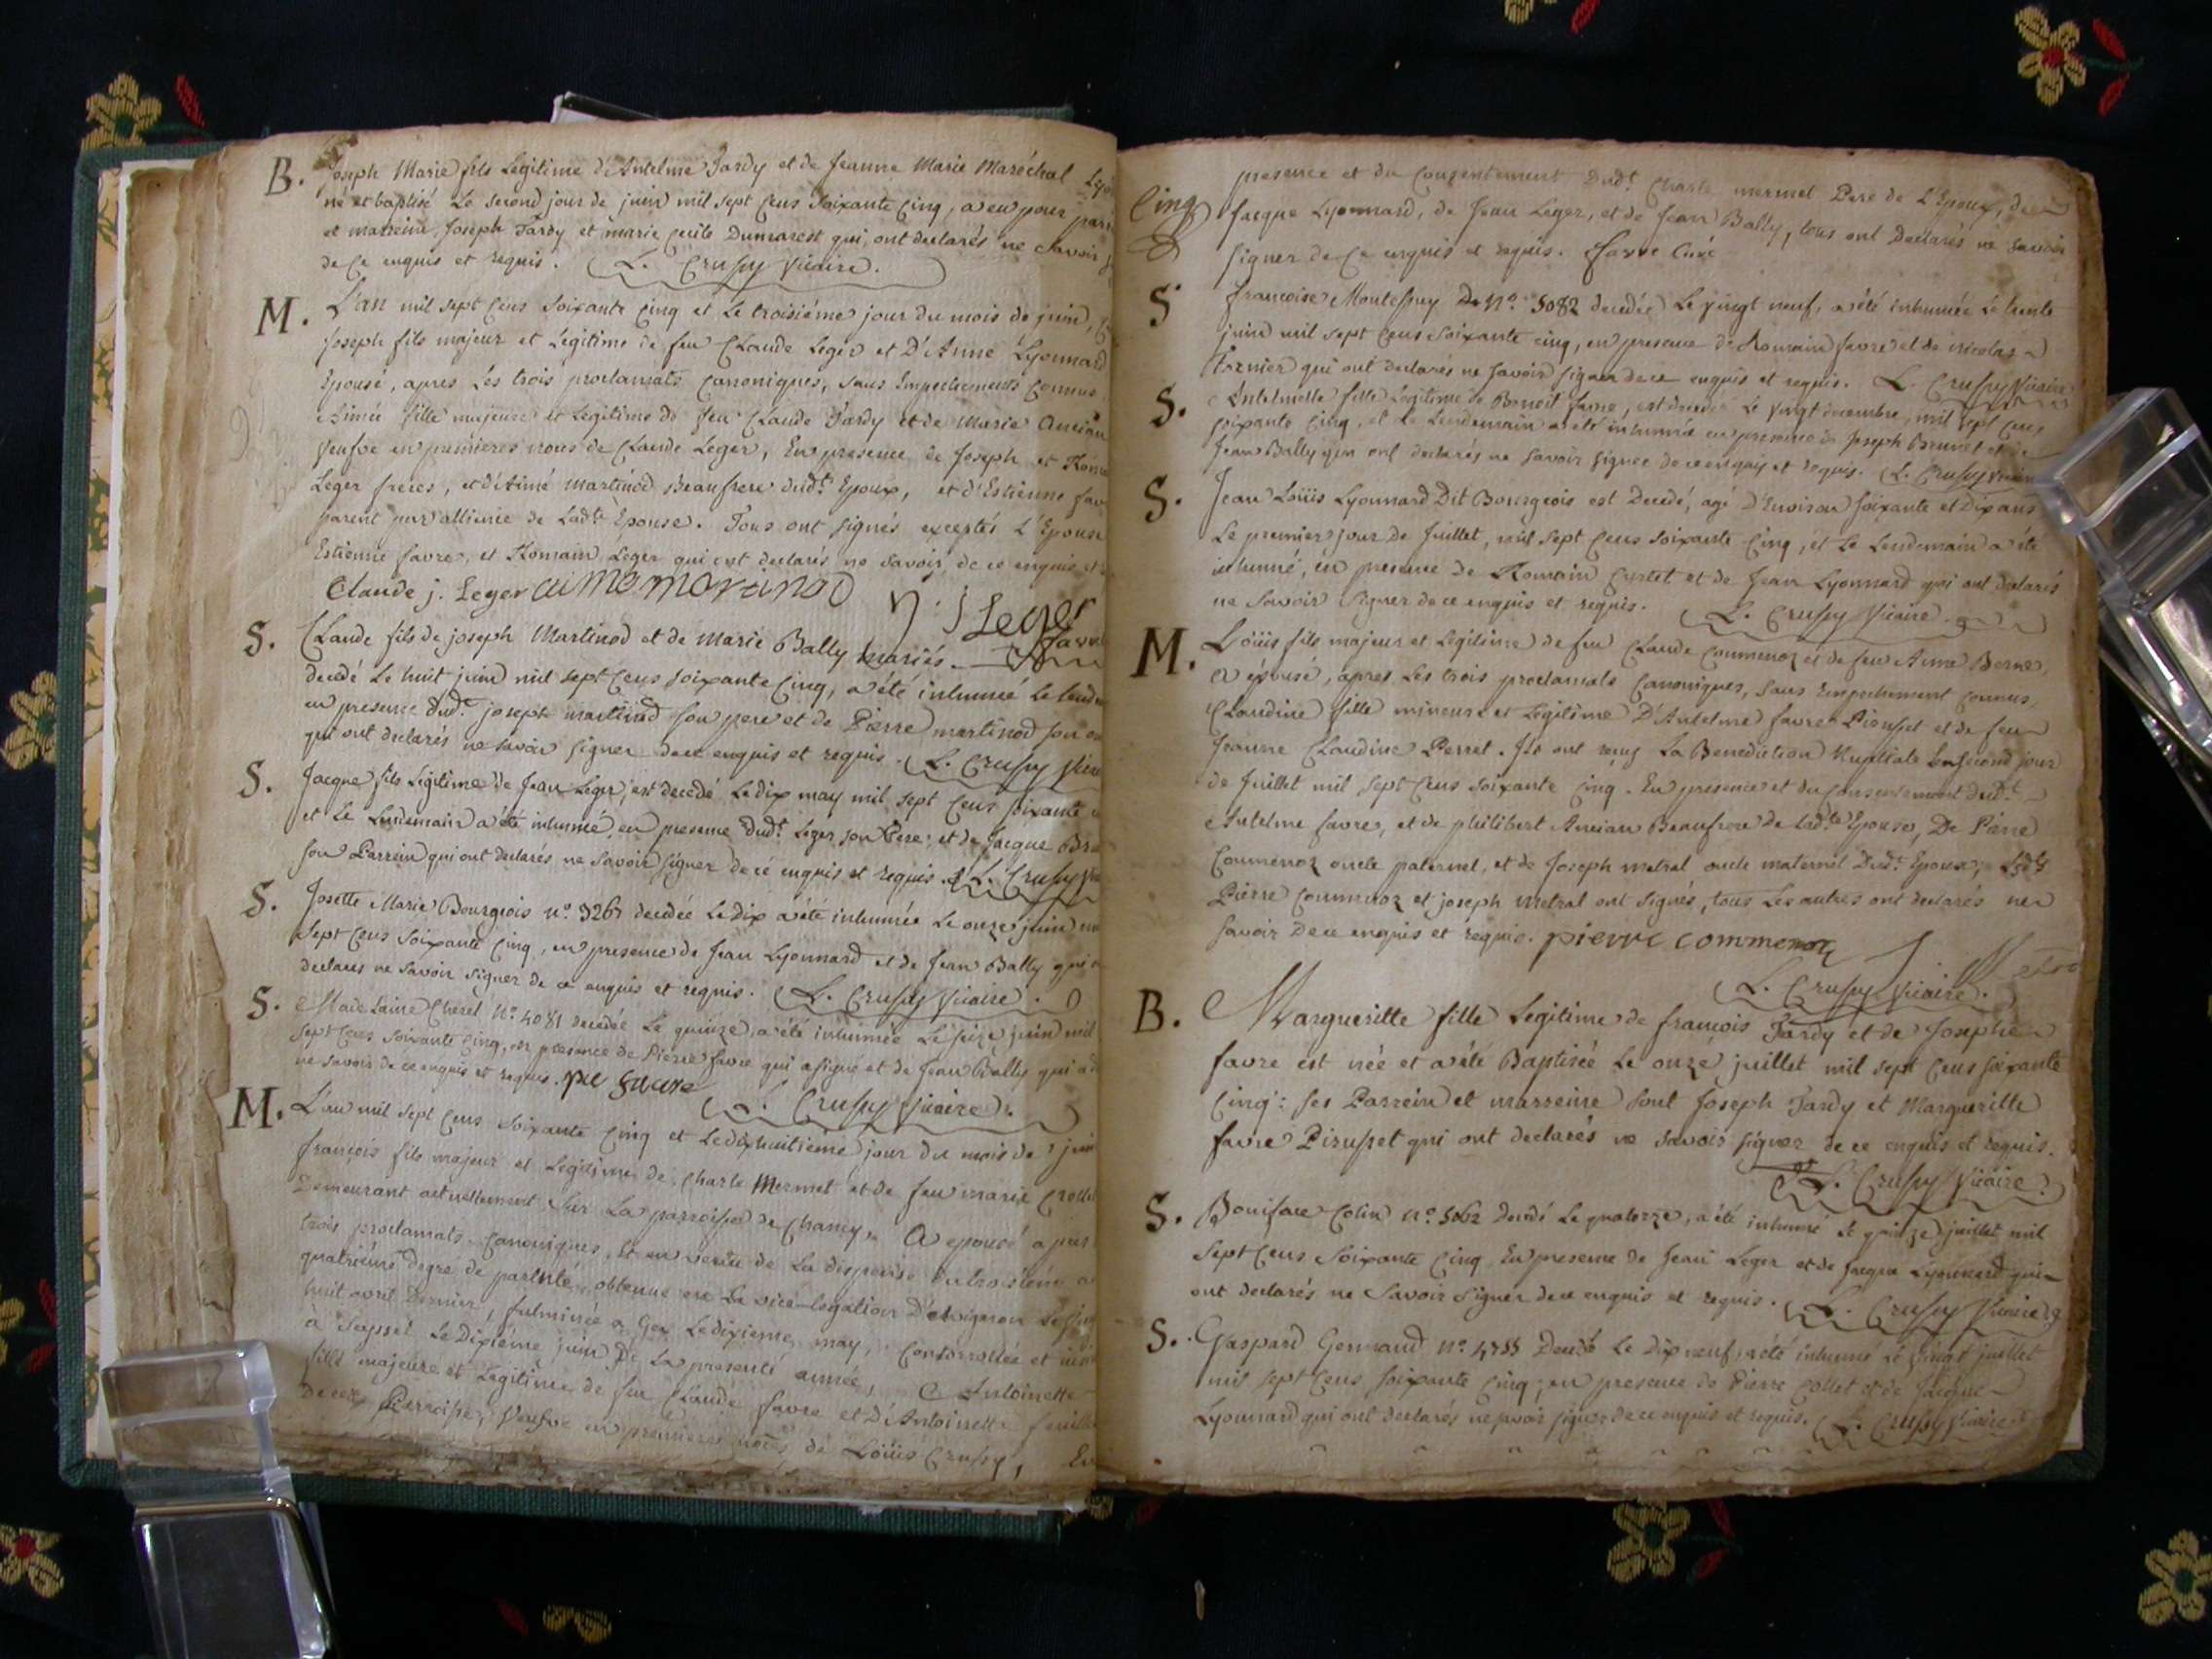 B. Joseph Marie fils Legitime d'Antelme Tardy et de Jeanne Marie Maréchal
né et baptisé Le second jour de juin mil sept Cens Soixante Cinq, a eu pour
et marreine, Joseph Tardy et marie Cecile Dumarest qui ont declarés ne Savoir
de Ce enquis et requis. L. Crussy Vicaire.
M. L'an mil sept Cens Soixante Cinq et Le troisiéme jour du mois de juin,
Joseph fils majeur et Légitime de feu Claude Leger et D'Anne Lyonnard
Epousé, apres Les trois proclamats Canoniques, sans Empechements Connus
Aimée fille majeure et Legitime de feu Claude Tardy et de Marie Ancian
Veufve en premières noces de Claude Leger, En presence de Joseph et
Leger freres, et d'Aimé Martinod Beaufrere dudt. Epoux, et d'Estienne
parent par alliance de Ladte Epouse. Tous ont signés exceptés L'Epouse
Estienne favre, et Romain Leger qui ont declarés ne Savoir, de ce enquis
Claude j. Leger aimé martinod j Leger
S. Claude fils de joseph Martinod et de Marie Bally Mariés
decedé Le huit juin mil sept Cens soixante Cinq, a été inhumé Le
en presence dudt. joseph martinod son pere et de Pierre martinod son
qui ont declarés ne savoir signer de ce enquis et requis. L. Crussy
S. Jacque fils Legitime de Jean Leger, est decedé Le dix may mil sept Cens soixante
et Le Lendemain a été inhumé, en presence dudt. Leger son Pere, et de Jacque
son Parrein qui ont declarés ne Savoir signer de cé enquis et requis. L. Crussy
S. Josette Marie Bourgeois no. 3267 decedée Le dix a été inhumée Le onze juin
sept Cens Soixante Cinq, en presence de Jean Lyonnard et de Jean Bally qui
declarés ne Savoir signer de ce enquis et requis. L. Crussy Vicaire.
S. Madelaine Cherel no. 4081 decedée Le quinze, a été inhumée Le seize juin mil
sept Cens soixante Cinq, en presence de Pierre favre qui a signé et de Jean Bally qui
ne savoir de ce enquis et requis. L. Crussy Vicaire.
M. L'an mil sept Cens Soixante Cinq et Le dixhuitieme jour du mois de
françois fils majeur et Legitime de Charle Mermet et de feu marie
Demeurant actuellement Sur La parroisse de Chancy, A epousé apres
trois proclamats Canoniques, et en vertu de La dispense du troisieme
quatrieme degre de parenté, obtenue en La vice-Legation D'Avignon
huit avril Dernier, fulminée a Gex Le dixieme may, et
à Seyssel Le Dixiéme juin De La presente année, Antoinette
fille majeure et Legitime de feu Claude favre et D'Antoinette
De cette Parroisse, Veufve en premieres noces de Löuis Crussy, En
presence et du Consentement Dudt. Charle mermet Pere de L'Epoux, de
Cinq Jacque Lyonnard, de Jean Leger, et de Jean Bally, tous ont Declarés ne Savoir
signer de Ce enquis et requis. favre Curé
S. Francoise Montessuy De No. 5082 decedée Le vingt neuf, a été inhumée Le trente
juin mil sept Cens soixante cinq, en presence de Romain favre et de nicolas
fornier qui ont declarés ne Savoir signer de ce enquis et requis. L. Crussy Vicaire
S. Antelmette fille Légitime de Benoit favre, est decedée Le vingt decembre, mil sept Cens
soixante Cinq, et Le Lendemain a été inhumée en presence de Joseph Brunet et de
Jean Bally qui ont declarés ne Savoir signer de ce enquis et requis. L. Crussy Vicaire
S. Jean Löuis Lyonnard Dit Bourgeois est Decedé, agé D'Environ Soixante et Dix ans
Le premier jour De Juillet, mil sept Cens soixante Cinq, et Le Lendemain a été
inhumé, en presence de Romain Curtet et de Jean Lyonnard qui ont declarés
ne Savoir signer de ce enquis et requis. L. Crussy Vicaire.
M. Löuis fils majeur et Legitime de feu Claude Coumenoz et de feu Anne Berne,
a épousé, apres Les trois proclamats Canoniques, sans Empechement Connus,
Claudine fille mineure et Legitime D'Antelme favre Pirusset et de feu
Jeanne Claudine Perret. Ils ont reçu La Benediction Nuptiale Le second jour
de Juillet mil sept Cens Soixante Cinq. En presence et du Consentement dudt.
Antelme favre, et de philibert Ancian Beaufrere de Ladte Epouse, De Pierre
Coumenoz oncle paternel, et de Joseph metral oncle maternel Dudt. Epoux; Lesdts
Pierre Coumenoz et joseph metral ont signés, tous Les autres ont declarés ne
savoir De ce enquis et requis. pierre commenoz
L. Crussy Vicaire.
B. Margueritte fille Legitime de francois Tardy et de Josephe
favre est née et a été Baptisée Le onze juillet mil sept Cens soixante
Cinq: ses Parrein et marreine sont Joseph Tardy et Margueritte
favre Pirusset qui ont declarés ne Savoir signer de ce enquis et requis.
L. Crussy Vicaire.
S. Boniface Colin no. 5062 decedé Le quatorze, a été inhumé Le quinze juillet mil
sept Cens Soixante Cinq En presence de Jean Leger et de Jacque Lyonnard qui
ont declarés ne Savoir signer de ce enquis et requis. L. Crussy Vicaire
S. Gaspard Gennand no. Decedé Le Dix neuf, a été inhumé Le vingt juillet
mil sept Cens soixante Cinq, en presence de Pierre Collet et de Jacque
Lyonnard qui ont declarés ne savoir signer de ce enquis et requis. L. Crussy Vicaire